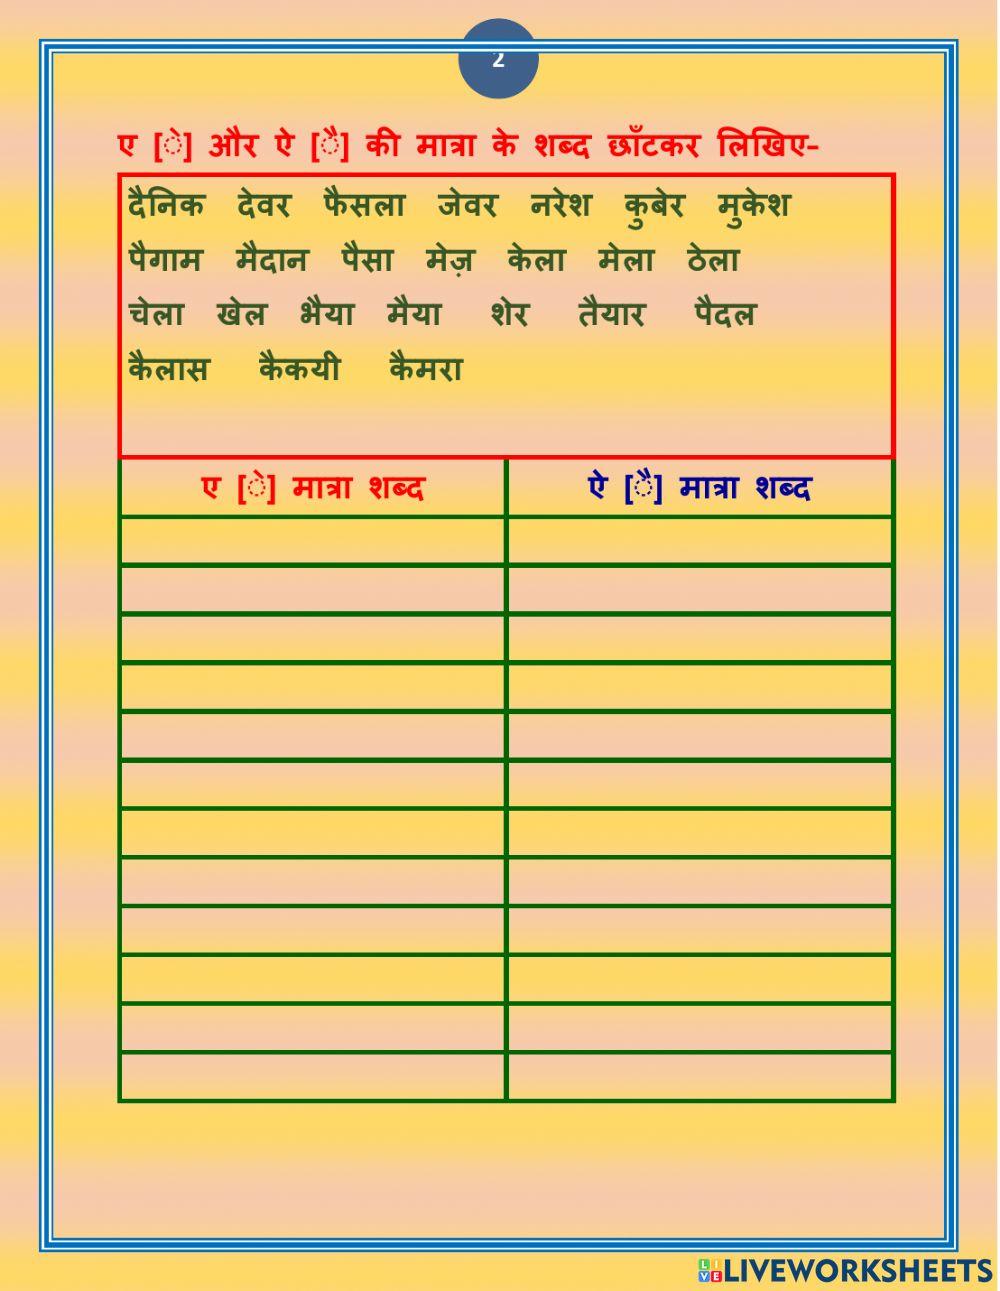 2
ए [े] और ऐ [ै] की मात्रा के शब्द छाँटकर लिखिए-
दैनिक देवर फैसला जेवर नरेश कुबेर मुकेश
पैगाम मैदान पैसा मेज़ केला मेला ठेला
चेला खेल भैया मैया शेर तैयार पैदल
कैलास कैकयी कैमरा
ए [े] मात्रा शब्द ऐ [ै] मात्रा शब्द
LIVE LIVEWORKSHEETS